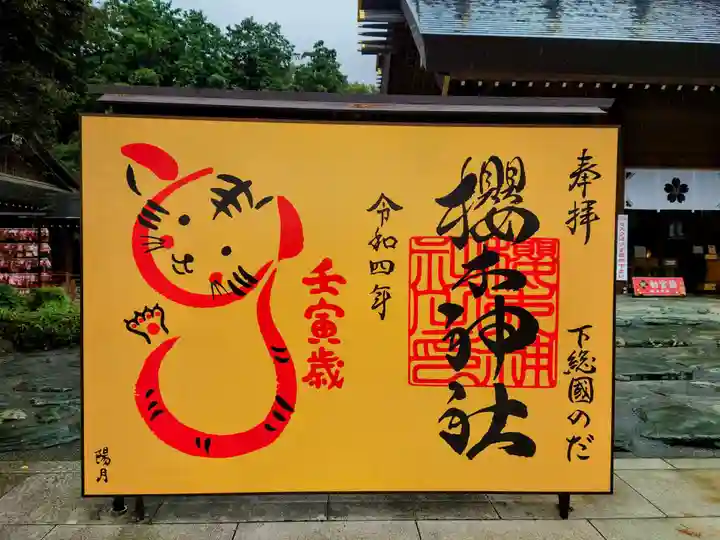 奉拝
下総國のだ
櫻木神社
令和四年
壬寅歳
陽月